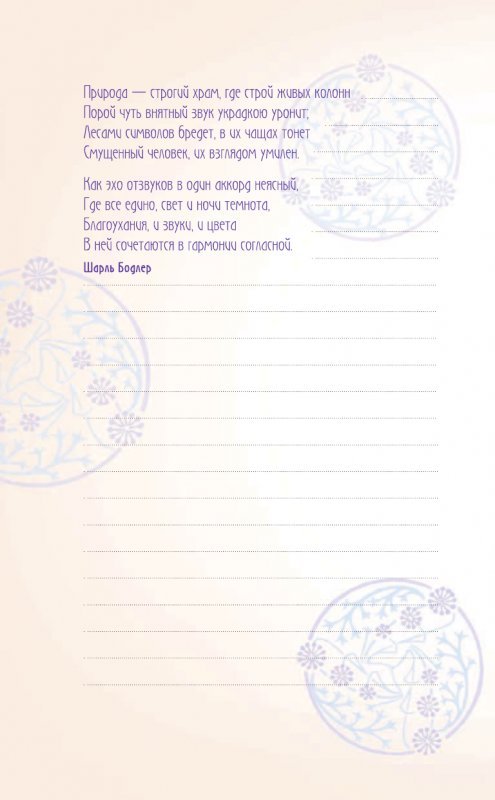 Природа — строгий храм, где строй живых колонн
Порой чуть внятный звук украдкою уронит;
Лесами символов бредет, в их чащах тонет
Смущенный человек, их взглядом умилен.
Как эхо отзвуков в один аккорд неясный,
Где все едино, свет и ночи темнота,
Благоухания, и звуки, и цвета
В ней сочетаются в гармонии согласной.
Шарль Бодлер